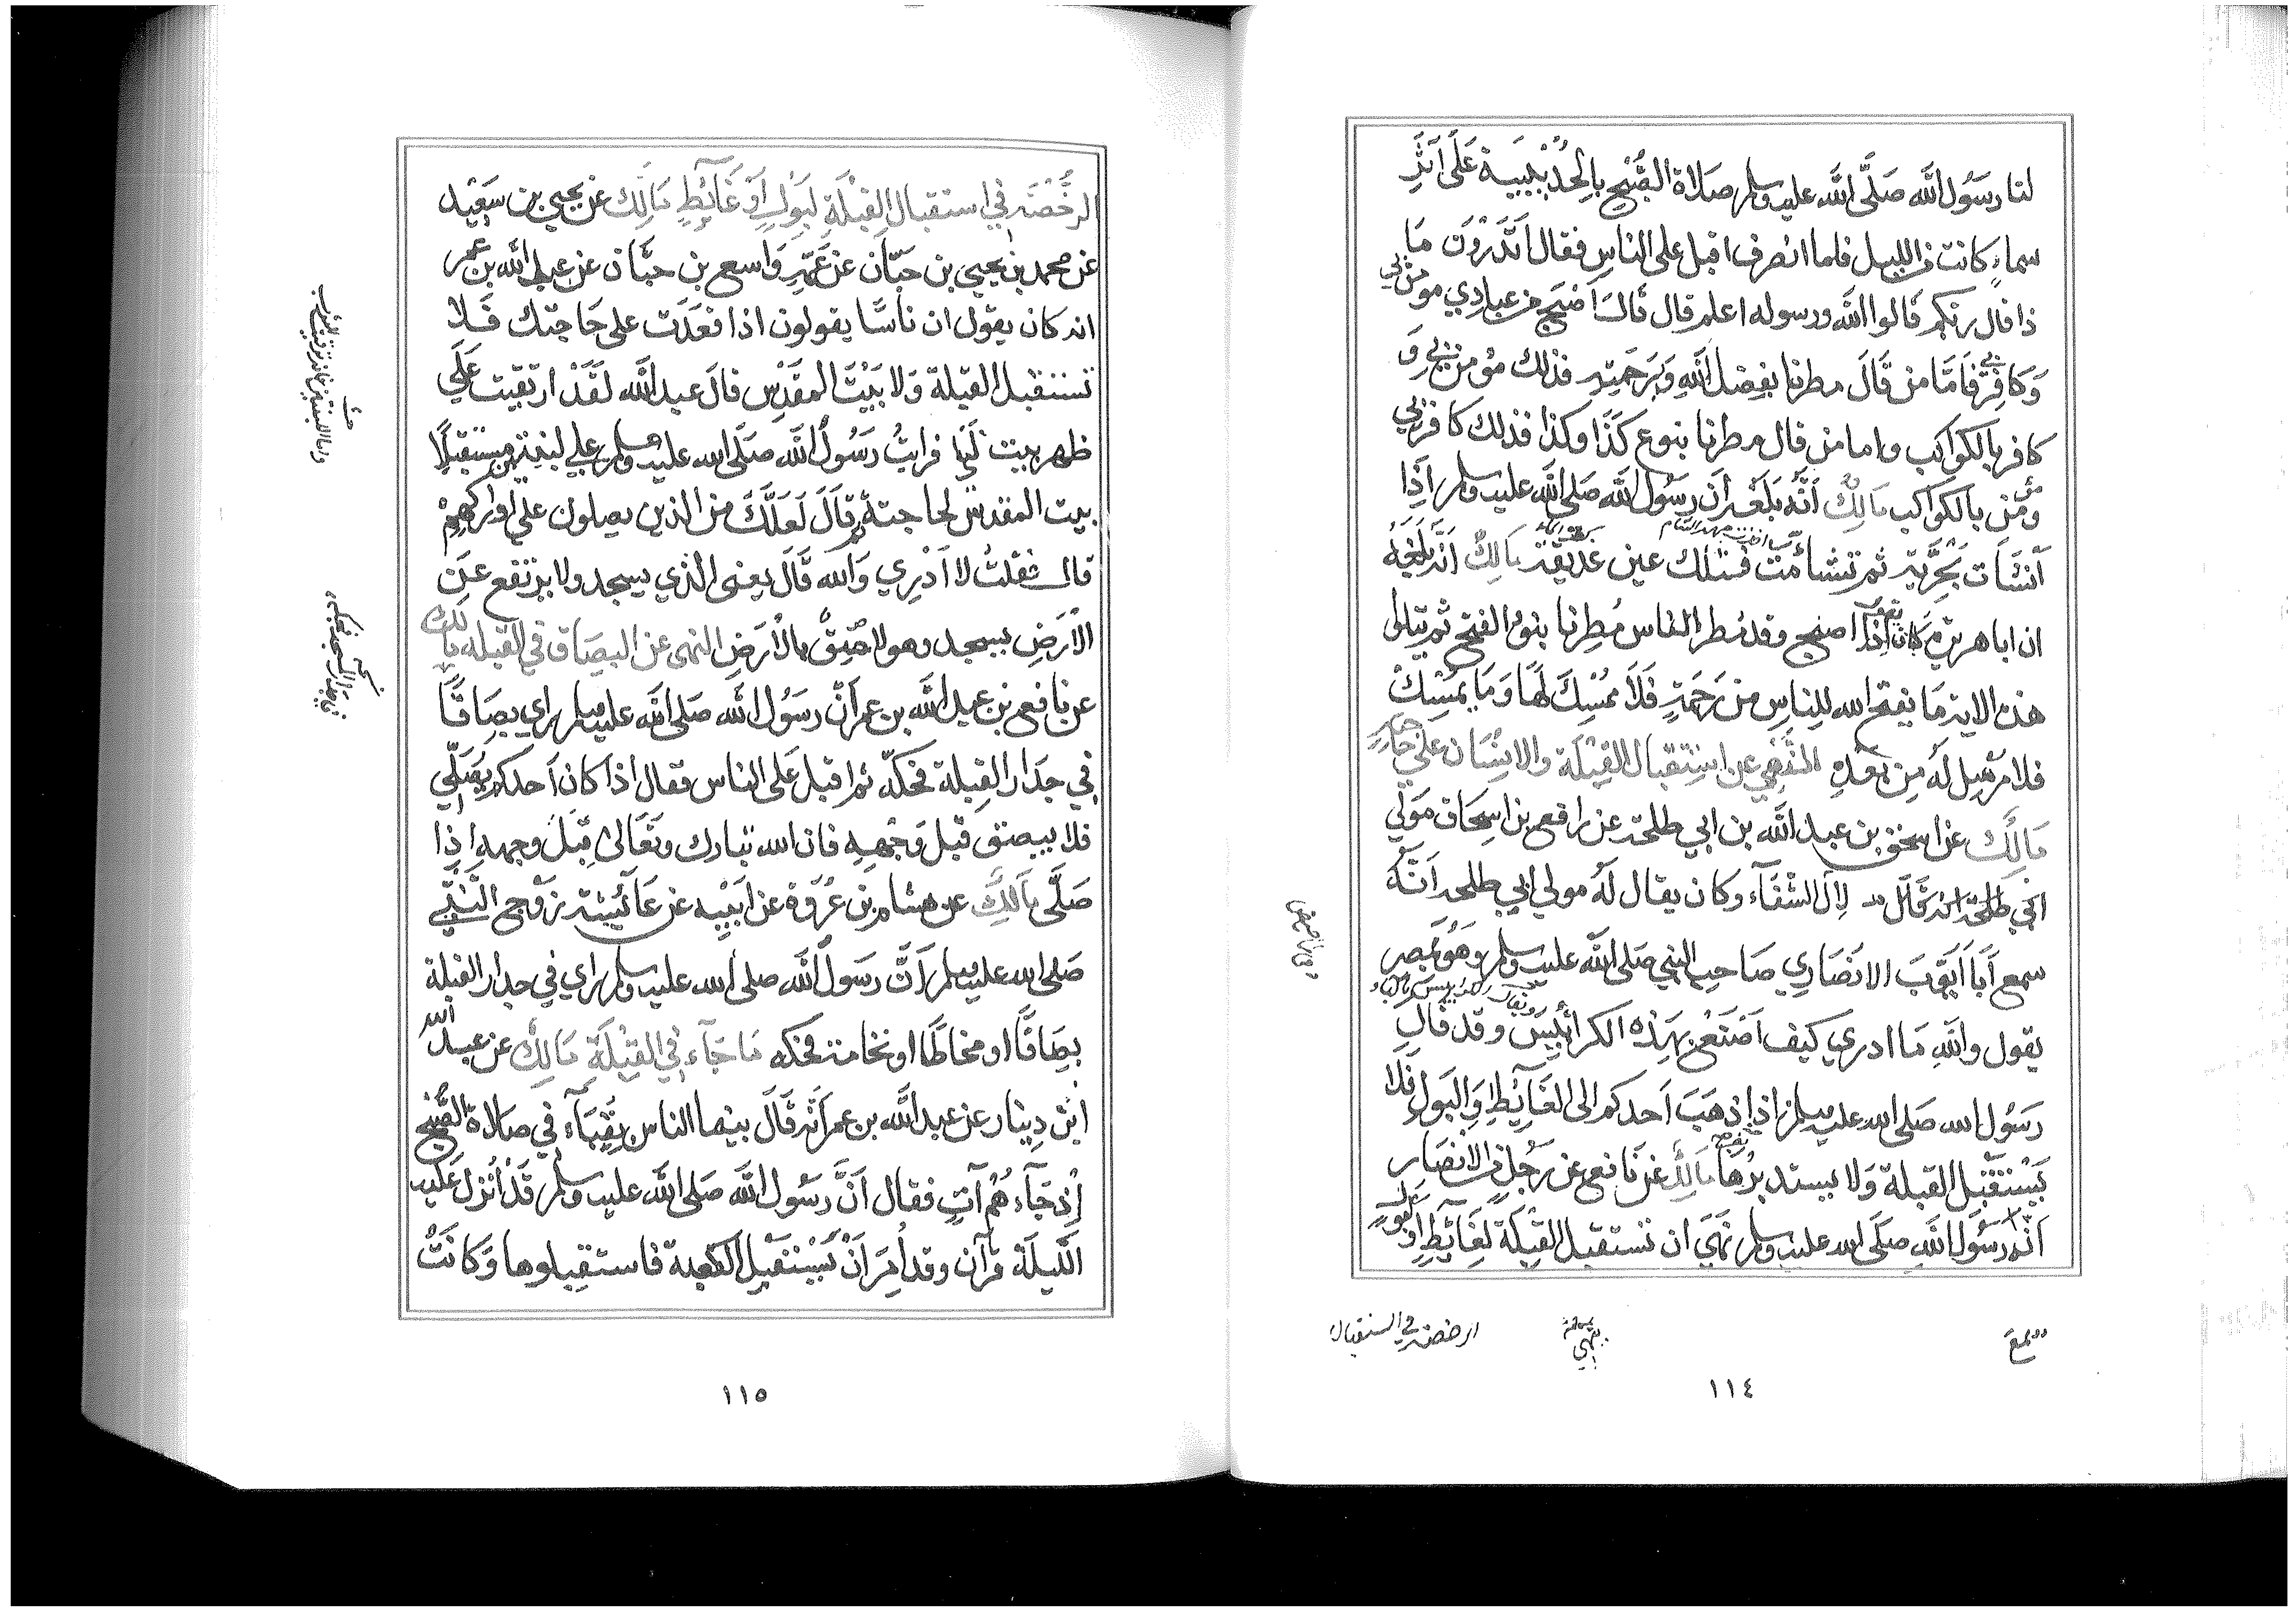 لنا رسول الله صلى الله عليه وسلم صلاة الصبح بالحديبية على اثر
سماء كانت من الليل فلما انصرف اقبل على الناس فقال اتدرون ما
ذا قال ربكم قالوا الله ورسوله اعلم قال قال اصبح من عبادي مؤمن بي
وكافر بي فاما من قال مطرنا بفضل الله وبرحمته فذلك مؤمن بي و
كافر بالكواكب واما من قال مطرنا بنوء كذا وكذا فذلك كافر بي
ومؤمن بالكواكب مالك أنه بلغه أن رسول الله صلى الله عليه وسلم اذا
أنشأت بحرية ثم تشاءمت فتلك عين غديقة مالك انه بلغه
ان ابا هريرة كان يقول اذا اصبح وقد مطر الناس مطرنا بنوء الفتح ثم يتلو
هذه الاية ما يفتح الله للناس من رحمة فلا ممسك لها وما يمسك
فلا مرسل له من بعده النهي عن استقبال القبلة والانسان على حاجته
مالك عن اسحق بن عبد الله بن ابي طلحة عن رافع بن اسحاق مولى
لآل الشفاء وكان يقال له مولى ابي طلحة أنه
سمع أبا أيوب الانصاري صاحب النبي صلى الله عليه وسلم وهو بمصر
يقول والله ما ادري كيف أصنع بهذه الكرائيس وقد قال
رسول الله صلى الله عليه وسلم اذا ذهب أحدكم الى الغائط والبول فلا
يستقبل القبلة ولا يستدبرها بفرجه مالك عن نافع عن رجل من الانصار
أنه رسول الله صلى الله عليه وسلم نهى ان تستقبل القبلة لغائط او بول
الرخصة في استقبال
١١٤
الرخصة في استقبال القبلة لبول أو غائط مالك عن يحيى بن سعيد
عن محمد بن يحيى بن حبان عن عمه واسع بن حبان عن عبد الله بن عمر
انه كان يقول ان ناسا يقولون اذا قعدت على حاجتك فلا
تستقبل القبلة ولا بيت المقدس قال عبد الله لقد ارتقيت على
ظهر بيت لنا فرايت رسول الله صلى الله عليه وسلم على لبنتين مستقبلا
بيت المقدس لحاجته ثم قال لعلك من الذين يصلون على اوراكهم
قال فقلت لا أدري والله قال يعني الذي يسجد ولا يرتفع عن
الأرض يسجد وهو لاصق بالأرض النهي عن البصاق في القبلة مالك
عن نافع بن عبد الله بن عمر أن رسول الله صلى الله عليه وسلم راي بصاقا
في جدار القبلة فحكه ثم اقبل على الناس فقال اذا كان أحدكم يصلي
فلا يبصق قبل وجهه فان الله تبارك وتعالى قبل وجهه إذا
صلى مالك عن هشام بن عروة عن أبيه عن عائشة زوج النبي
صلى الله عليه وسلم أن رسول الله صلى الله عليه وسلم راي في جدار القبلة
بصاقا او مخاطا او نخامة فحكه ما جاء في القبلة مالك عن عبد الله
ابن دينار عن عبد الله بن عمر أنه قال بينما الناس بقباء في صلاة الصبح
إذ جاءهم آت فقال أن رسول الله صلى الله عليه وسلم قد أنزل عليه
الليلة قرآن وقد أمر أن يستقبل الكعبة فاستقبلوها وكانت
١١٥